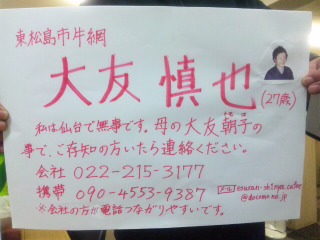 東松島市牛網
大友 慎也
(27歳)
私は仙台で無事です。母の大友朝子の
事で、ご存知の方いたら連絡ください。
会社 022-215-3177
携帯 090-4553-9387
※会社の方が電話つながりやすいです。
メール
@docomo.ne.jp